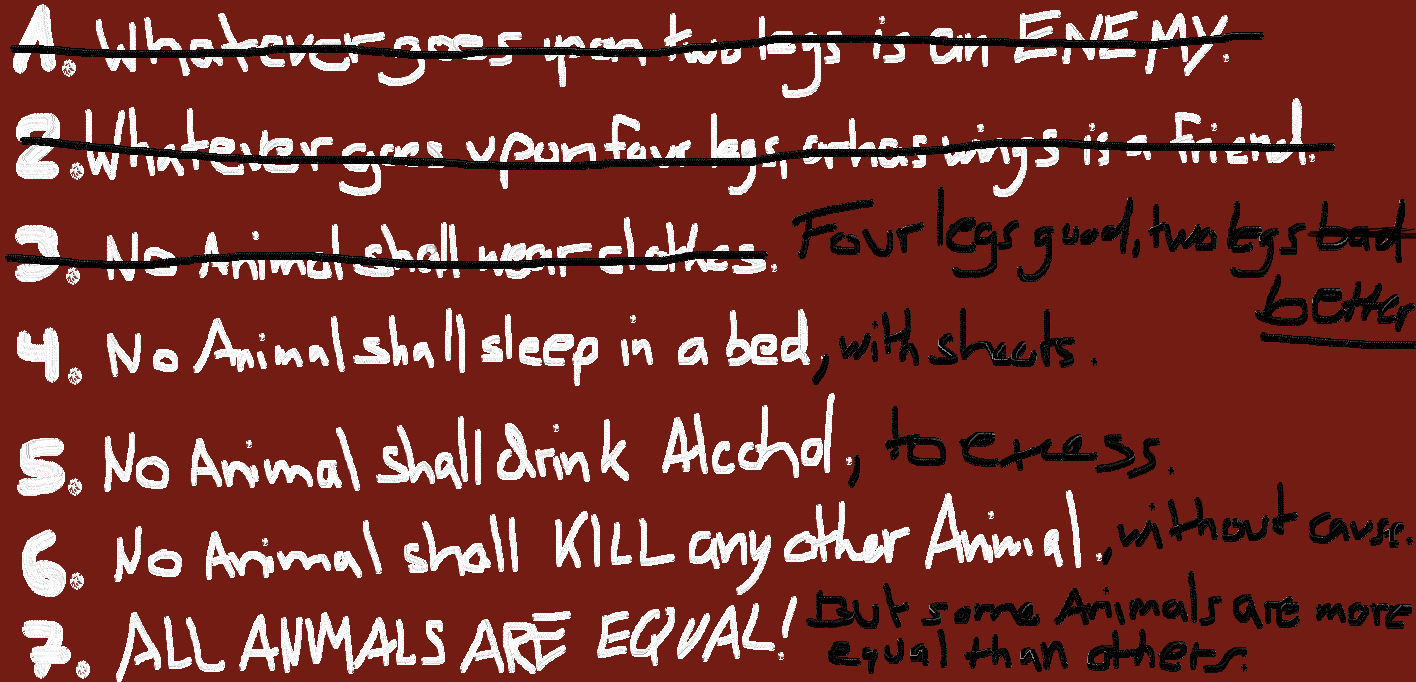 1. Whatever goes upon two legs is an ENEMY.
2. Whatever goes upon four legs, or has wings is a friend.
3. No Animal shall wear clothes. Four legs good, two legs bad
better
4. No Animal shall sleep in a bed, with sheets.
5. No Animal shall drink Alcohol, to excess.
6. No Animal shall KILL any other Animal, without cause.
7. ALL ANIMALS ARE EQUAL! But some Animals are more
equal than others.